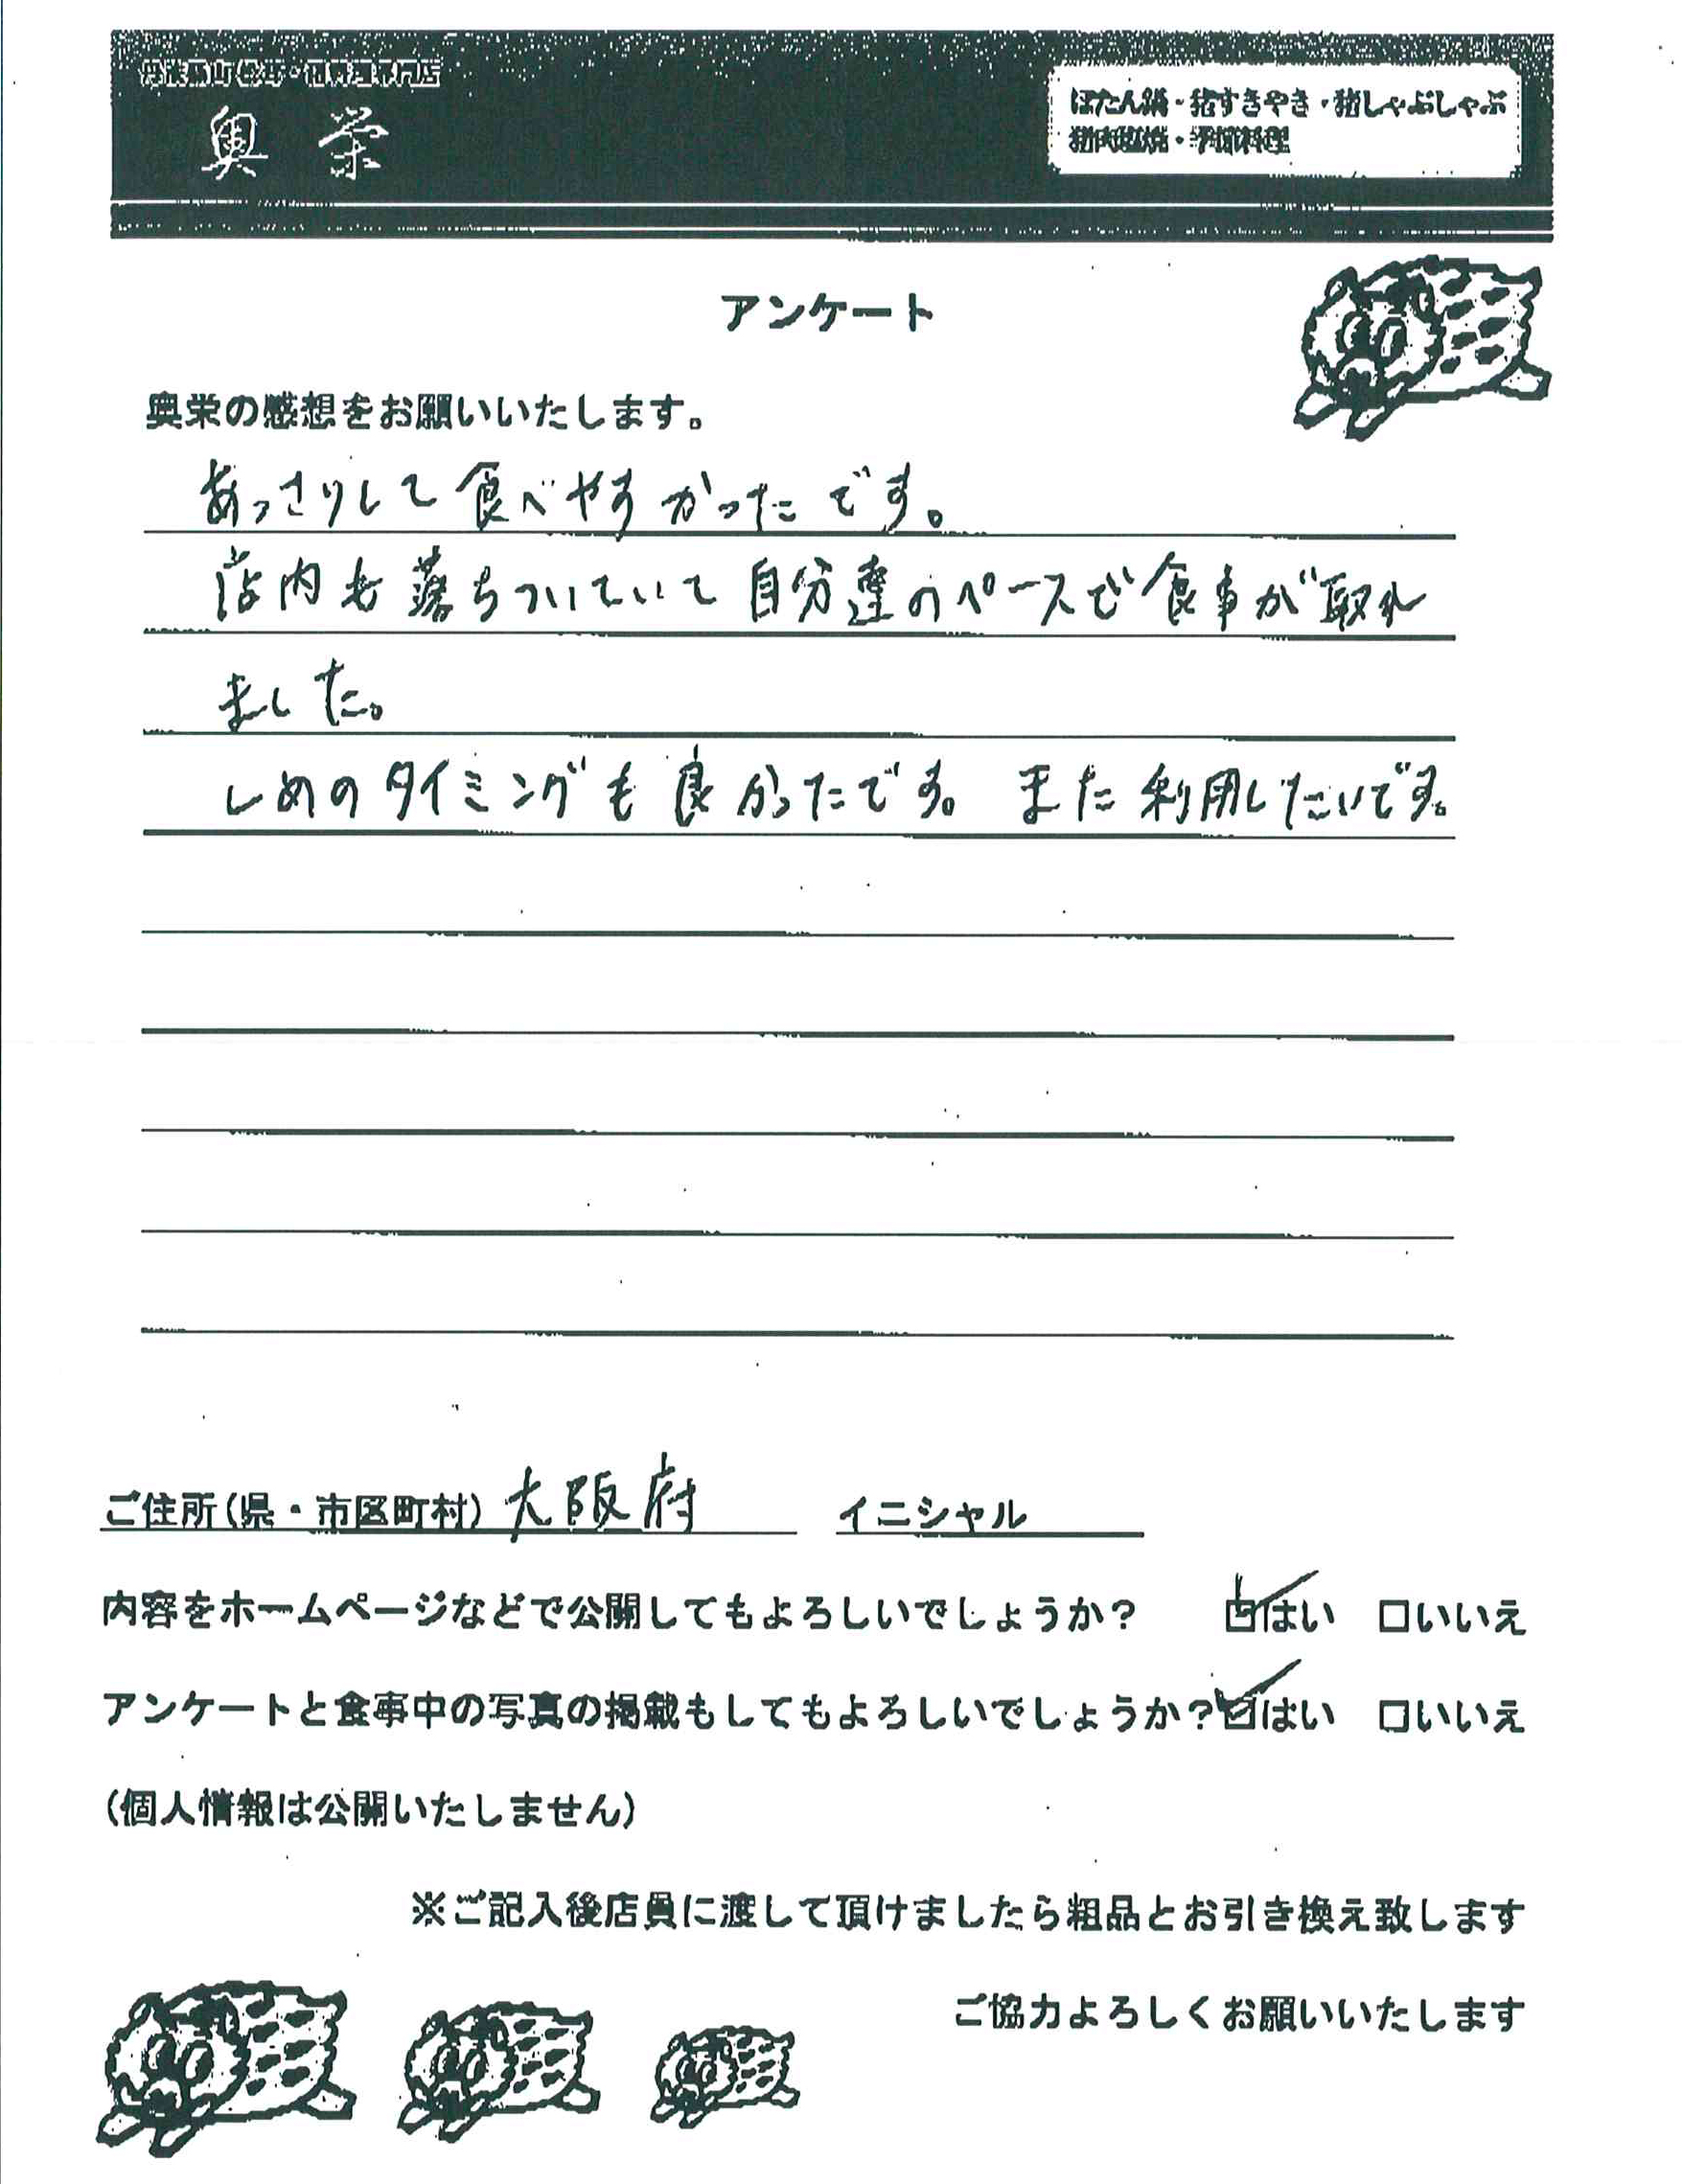 奥栄
ぼたん鍋・猪すきやき・猪しゃぶしゃぶ
アンケート
奥栄の感想をお願いいたします。
あっさりして食べやすかったです。
店内も落ちついていて自分達のペースで食事が取れ
ました。
しめのタイミングも良かったです。また利用したいです。
ご住所(県・市区町村) 大阪府 イニシャル
内容をホームページなどで公開してもよろしいでしょうか? ☑はい □いいえ
アンケートと食事中の写真の掲載もしてもよろしいでしょうか? ☑はい □いいえ
(個人情報は公開いたしません)
※ご記入後店員に渡して頂けましたら粗品とお引き換え致します
ご協力よろしくお願いいたします